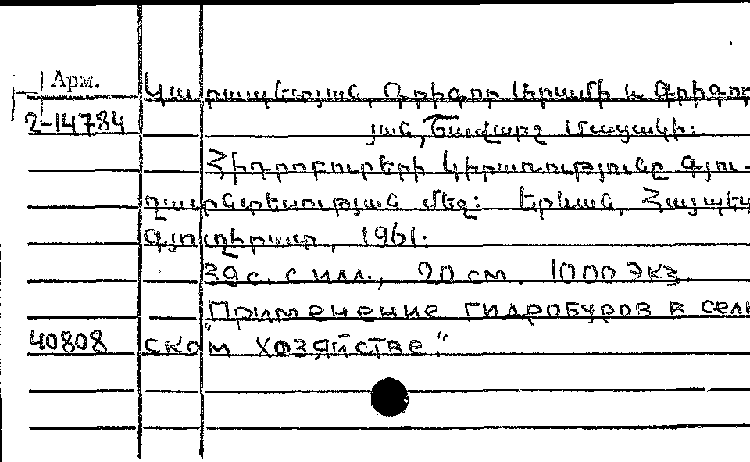 Арм.
Կարապետյան, Գրիգոր Արամի և Գրիգոր
2-14784 յան,
Հիդրոբուրերի կիրառությունը գյու-
ղատնտեսության մեջ: Երևան, Հայպետ
գյուղհրատ, 1961.
39 с. с илл., 20 см. 1000 экз.
"Применение гидробуров в сель
40808 ском хозяйстве"